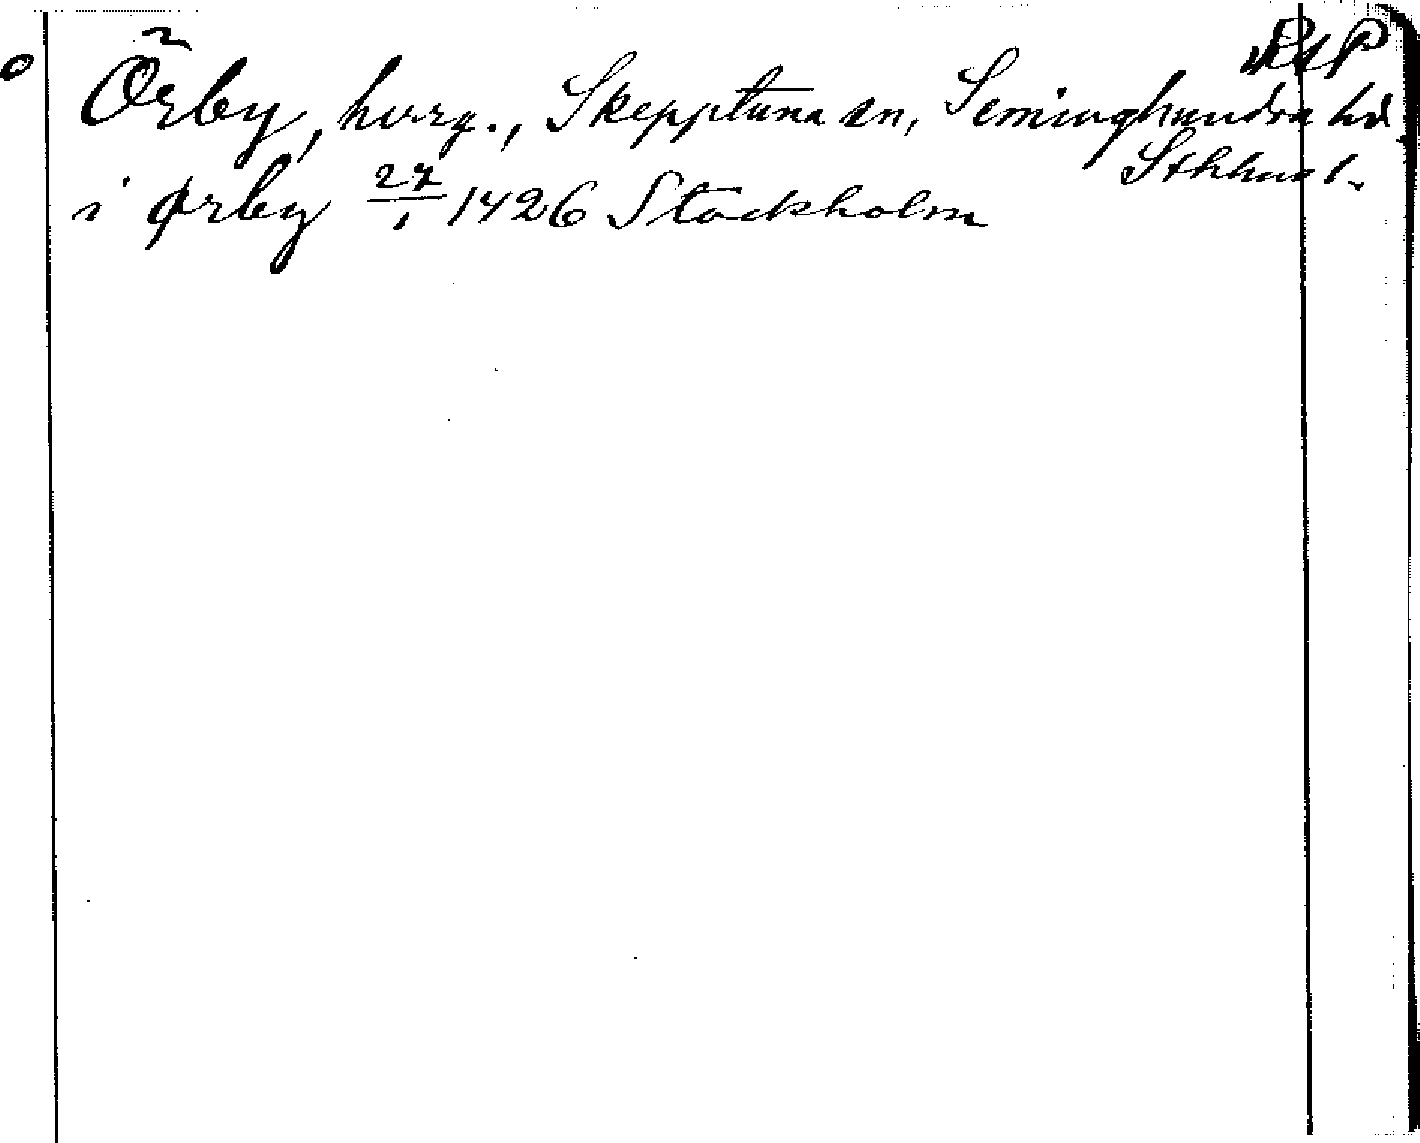 RAP
Örby, herrg., Skepptuna sn, Seminghundra hd.
Sthhms l.
i ørby 27/1 1426 Stockholm